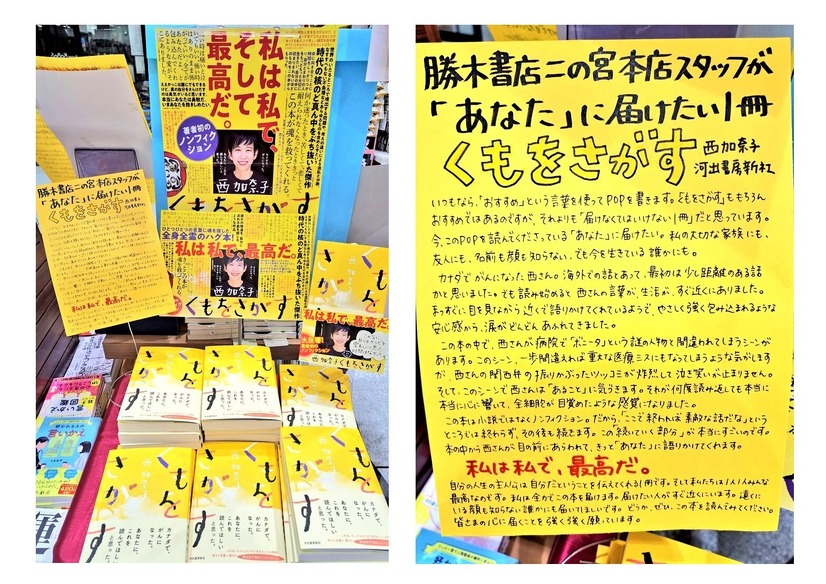 私は私で、
そして
最高だ。
時代の核のど真ん中をぶち抜いた傑作
この本が魂を救ってくれる。
著者初の
ノンフィクション
西加奈子
くもをさがす
ひとつひとつの言葉に魂を授した
全身全霊のハグ本!
私は私で、最高だ。
西加奈子
くもをさがす
時代の核のど真ん中をぶち抜いた傑作
勝木書店二の宮本店スタッフが
「あなた」に届けたい1冊
くもをさがす
私は私で、最高だ。
くもをさがす
西加奈子
私は私で、最高だ。
西加奈子 くもをさがす
くもをさがす
西加奈子
カナダで、
がんに
なった。
あなたに、
これを
読んでほしい
と思った。
河出書房新社
言いかえ
図鑑
勝木書店二の宮本店スタッフが
「あなた」に届けたい1冊
くもをさがす 西加奈子
河出書房新社
いつもなら、「おすすめ」という言葉を使ってPOPを書きます。『くもをさがす』ももちろん
おすすめではあるのですが、それよりも「届けなくてはいけない1冊」だと思っています。
今、このPOPを読んでくださっている「あなた」に届けたい。私の大切な家族にも、
友人にも、名前も顔も知らない、でも今を生きている誰かにも。
カナダでがんになった西さん。海外での話とあって、最初は少し距離のある話
かと思いました。でも読み始めると西さんの言葉が、生活が、すぐ近くにありました。
まっすぐに目を見ながら近くで語りかけてくれているようで、やさしく強く包み込まれるような
安心感から、涙がどんどんあふれてきました。
この本の中で、西さんが病院で「ボニータ」という謎の人物と間違われてしまうシーンが
あります。このシーン、一歩間違えれば重大な医療ミスにもなってしまうような気がします
が、西さんの関西弁の振りかぶったツッコミが炸裂して泣き笑いが止まりません。
そして、このシーンで西さんは「あること」に気づきます。それが何度読み返しても本当に
本当に心に響いて、全細胞が目覚めたような感覚になりました。
この本は小説ではなくノンフィクション。だから、「ここで終われば素敵な話だな」という
ところでは終わらず、その後も続きます。この「続いていく部分」が本当にすごいのです。
本の中から西さんが目の前にあらわれて、きっと「あなた」に語りかけてくれます。
私は私で、最高だ。
自分の人生の主人公は自分だということを伝えてくれる1冊です。そして私たちは1人1人みんな
最高なのです。私は全力でこの本を届けます。届けたい人がすぐ近くにいます。遠くに
いる顔も知らない誰かにも届いてほしいです。どうか、ぜひ、この本を読んでみてください。
皆さまの心に届くことを強く強く願っています。